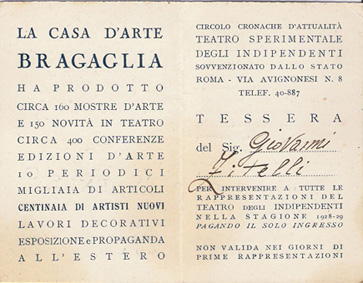 LA CASA D'ARTE
BRAGAGLIA
HA PRODOTTO
CIRCA 160 MOSTRE D'ARTE
E 150 NOVITÀ IN TEATRO
CIRCA 400 CONFERENZE
EDIZIONI D'ARTE
10 PERIODICI
MIGLIAIA DI ARTICOLI
CENTINAIA DI ARTISTI NUOVI
LAVORI DECORATIVI
ESPOSIZIONE e PROPAGANDA
ALL'ESTERO
CIRCOLO CRONACHE D'ATTUALITÀ
TEATRO SPERIMENTALE
DEGLI INDIPENDENTI
SOVVENZIONATO DALLO STATO
ROMA - VIA AVIGNONESI N. 8
TELEF. 40-887
TESSERA
del Sig. Giovanni
Zitelli
PER INTERVENIRE A TUTTE LE
RAPPRESENTAZIONI DEL
TEATRO DEGLI INDIPENDENTI
NELLA STAGIONE 1928-29
PAGANDO IL SOLO INGRESSO
NON VALIDA NEI GIORNI DI
PRIME RAPPRESENTAZIONI